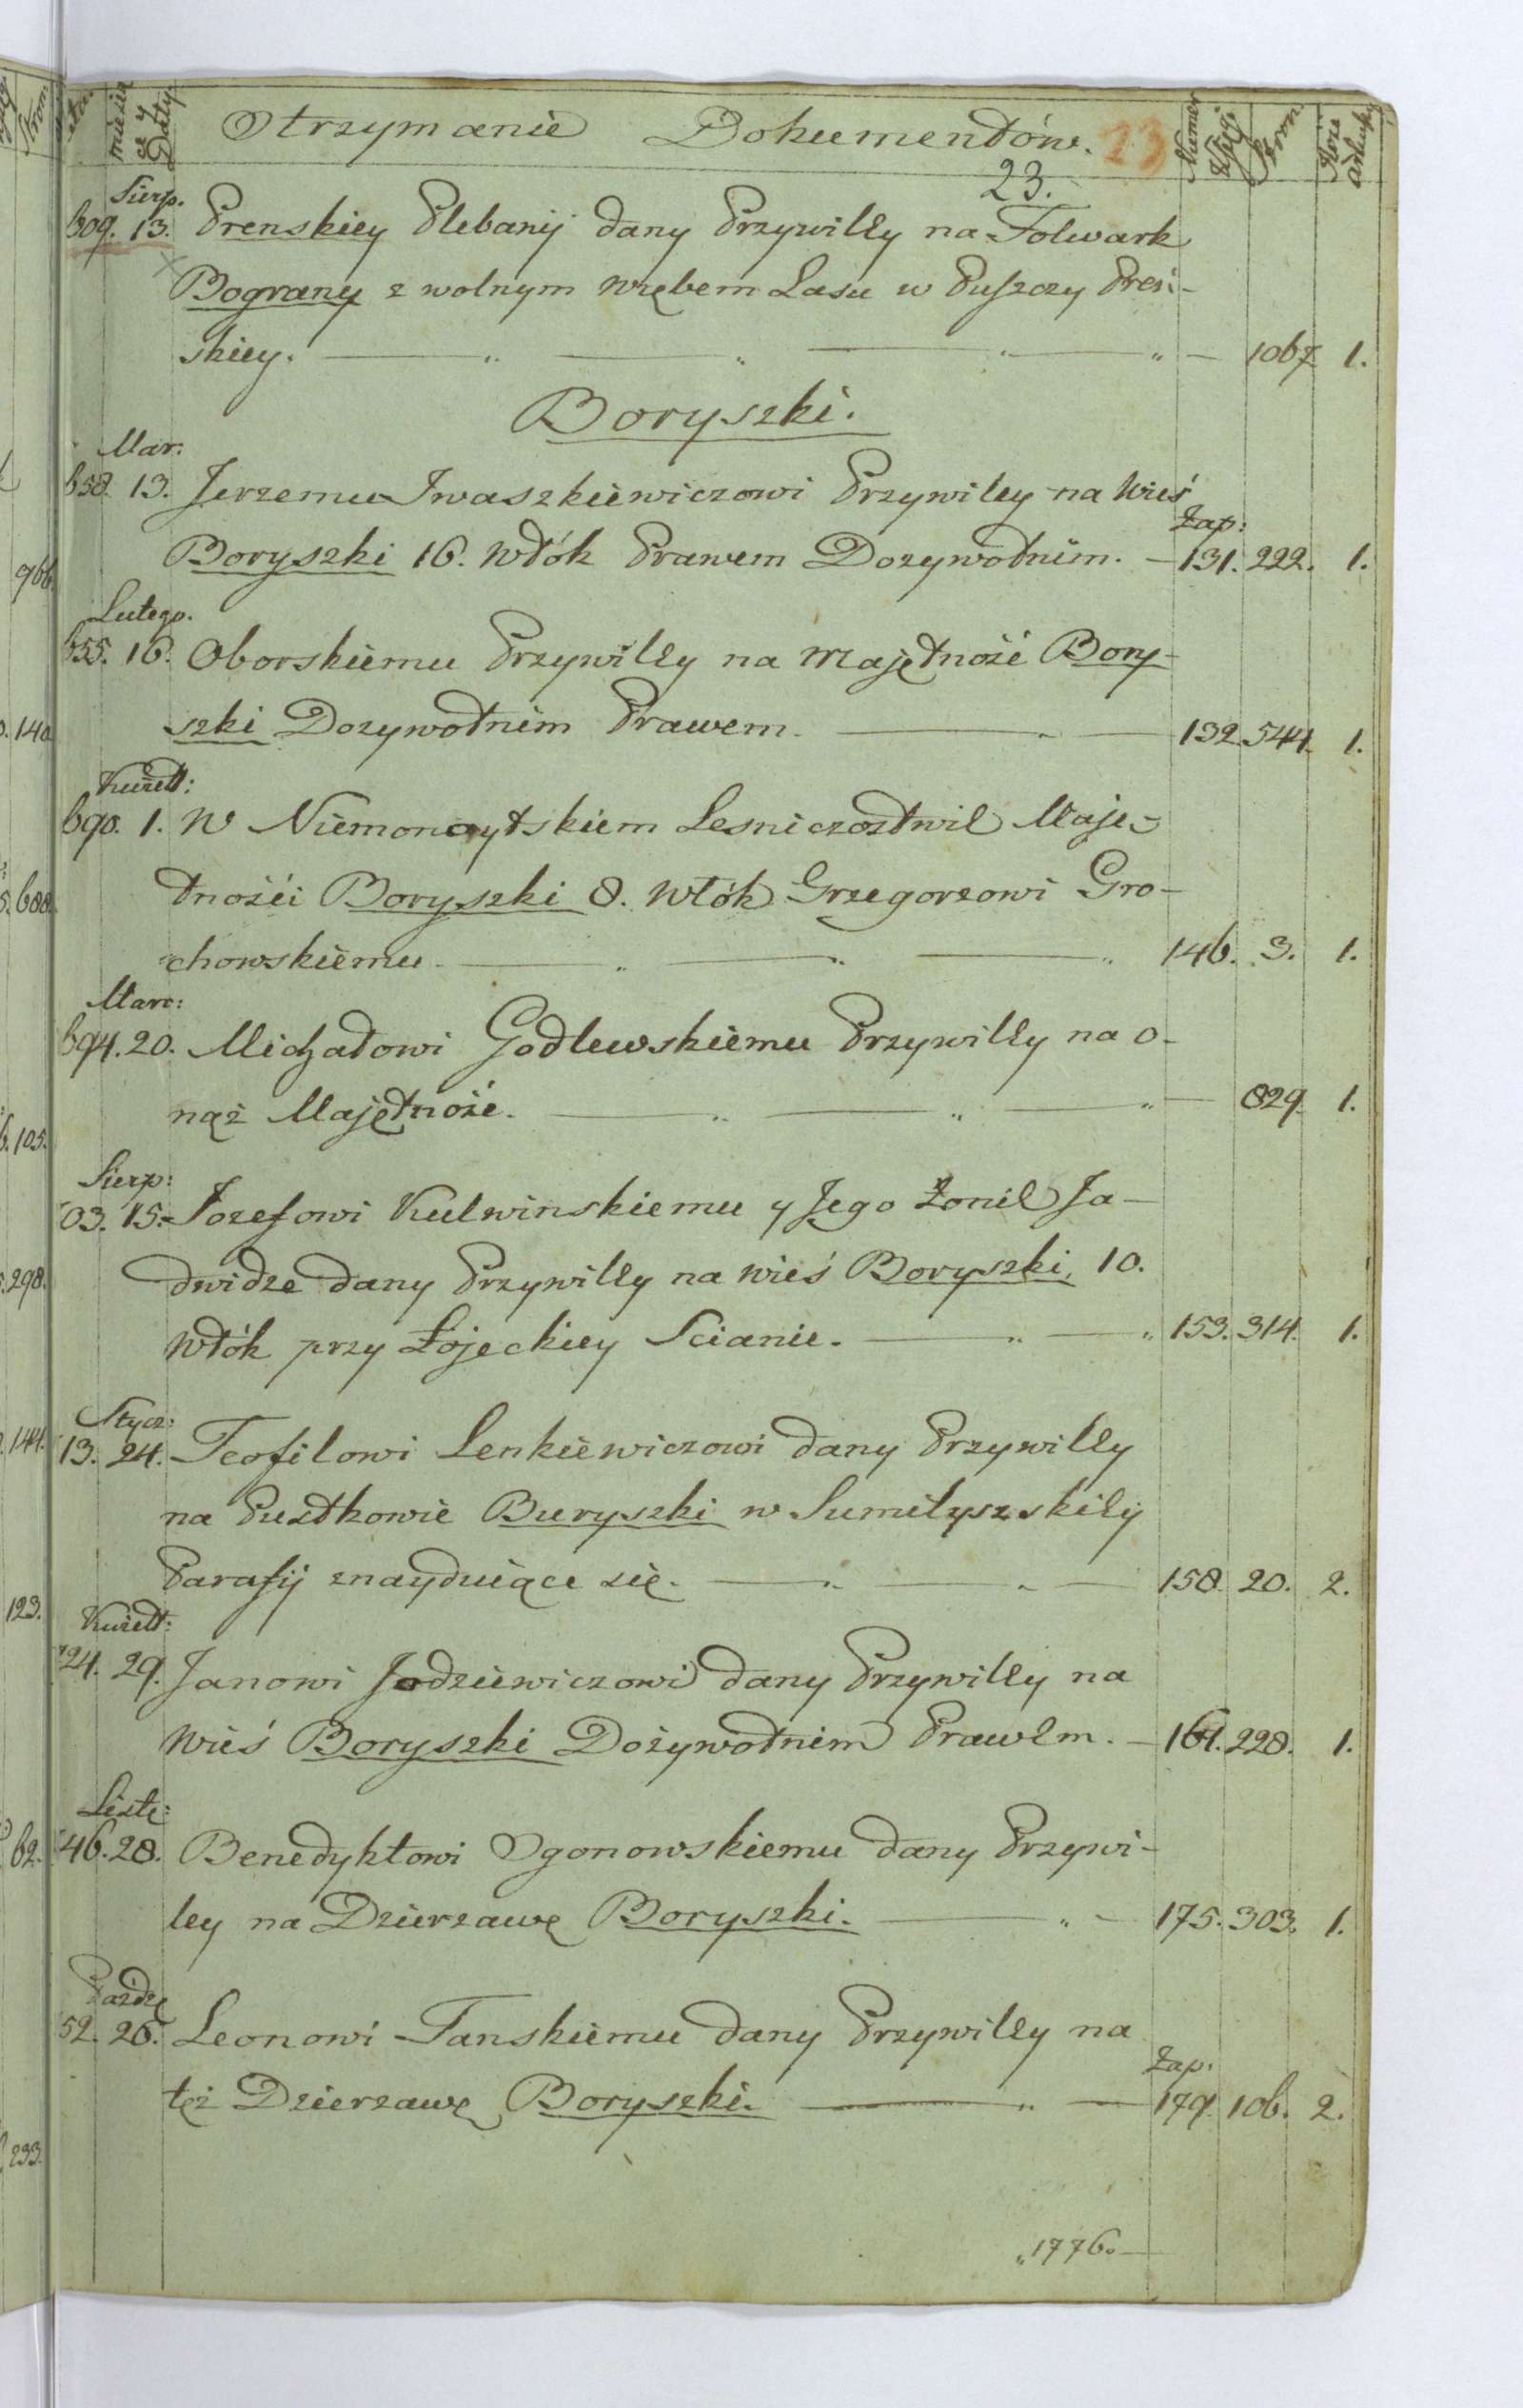 miesiące y Daty Otrzymanie Dokumentów. 23 Numer Księgi Stron.
23.
Sierp.
609. 13. Prenskiey Plebanij dany Przywilley na Folwark
Pograny z wolnym wrębem Lasu w Puszczy Preń-
skiey. 1067 1.
Boryszki.
Mar:
658. 13. Jerzemu Iwaszkiewiczowi Przywiley na Wieś
Zap:
Boryszki 16. Włók Prawem Dozywotnim. 131. 222. 1.
Lutego.
655. 16. Oborskiemu Przywilley na Majętność Bory-
szki Dozywotnim Prawem. 132. 544. 1.
Kwiet:
690. 1. W Niemonoytskiem Lesniczostwie Maję-
tności Boryszki 8. Włók Grzegorzowi Gro-
chowskiemu. 146. 3. 1.
Marc:
694. 20. Michałowi Godlewskiemu Przywilley na o-
nąż Majętność. 829. 1.
Sierp:
03. 15. Jozefowi Kulwinskiemu y Jego Żonie Ja-
dwidze dany Przywilley na wieś Boryszki, 10.
Włók przy Łojeckiey Scianie. 153. 314. 1.
Stycz:
13. 24. Teofilowi Lenkiewiczowi dany Przywilley
na Pustkowie Buryszki w Sumiłyszskiey
Parafij znayduiące się. 158. 20. 2.
Kwiet:
724. 29. Janowi Jodziewiczowi dany Przywilley na
Wieś Boryszki Dożywotnim Prawem. 161. 228. 1.
Listę:
46. 28. Benedyktowi Ogonowskiemu dany Przywi-
ley na Dzierzawę Boryszki. 175. 303. 1.
Pazdz
52. 26. Leonowi Tanskiemu dany Przywilley na
Zap.
też Dzierzawę Boryszki. 179. 106. 2.
1776.